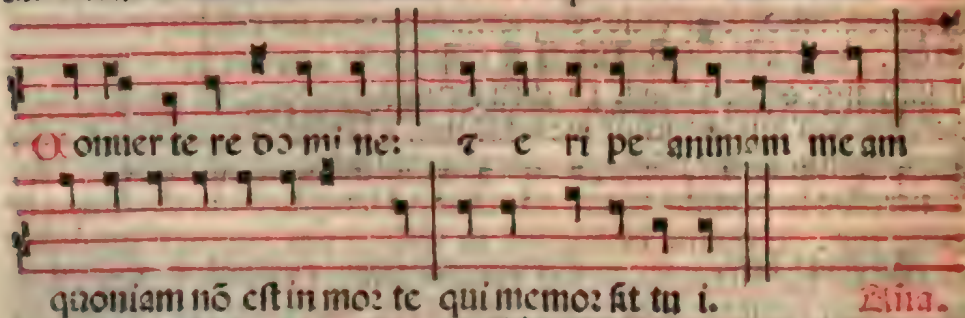 Conuer te re do mi ne: ⁊ e ri pe animam meam
quoniam nō eſt in moꝛ te qui memoꝛ ſit tu i. Aña.